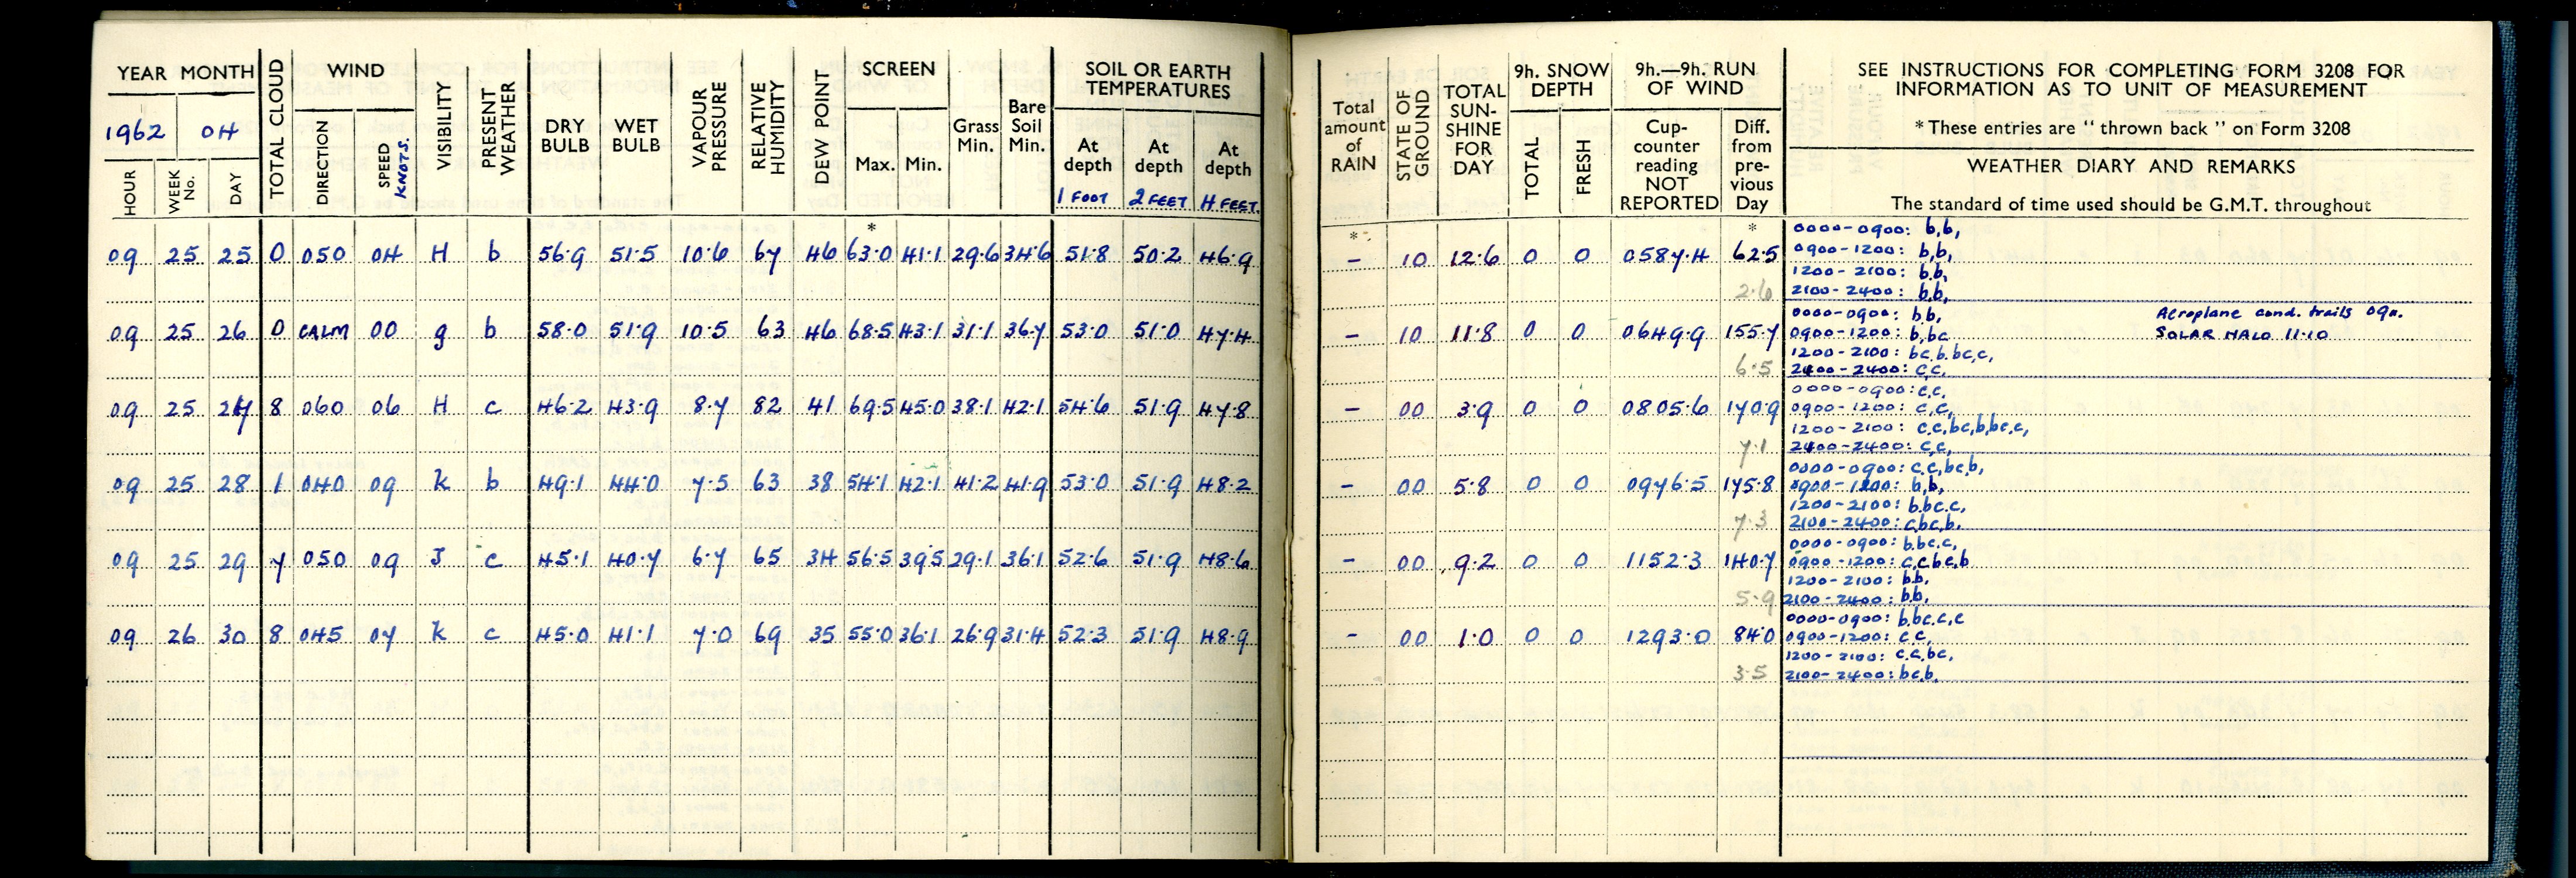 YEAR MONTH
1962 04
HOUR
WEEK No.
DAY
TOTAL CLOUD
WIND
DIRECTION
SPEED KNOTS.
VISIBILITY
PRESENT WEATHER
DRY BULB
WET BULB
VAPOUR PRESSURE
RELATIVE HUMIDITY
DEW POINT
SCREEN
Max. Min.
Grass Min.
Bare Soil Min.
SOIL OR EARTH TEMPERATURES
At depth 1 FOOT
At depth 2 FEET
At depth 4 FEET.
*
09 25 25 0 050 04 H b 56.9 51.5 10.6 67 46 63.0 41.1 29.6 34.6 51.8 50.2 46.9
09 25 26 0 CALM 00 g b 58.0 51.9 10.5 63 46 68.5 43.1 31.1 36.7 53.0 51.0 47.4
09 25 27 8 060 06 H c 46.2 43.9 8.7 82 41 69.5 45.0 38.1 42.1 54.6 51.9 47.8
09 25 28 1 040 09 k b 49.1 44.0 7.5 63 38 54.1 42.1 41.2 41.9 53.0 51.9 48.2
09 25 29 7 050 09 J c 45.1 40.7 6.7 65 34 56.5 39.5 29.1 36.1 52.6 51.9 48.6
09 26 30 8 045 07 k c 45.0 41.1 7.0 69 35 55.0 36.1 26.9 31.4 52.3 51.9 48.9
Total amount of RAIN
STATE OF GROUND
TOTAL SUN-SHINE FOR DAY
9h. SNOW DEPTH
TOTAL
FRESH
9h.—9h. RUN OF WIND
Cup-counter reading NOT REPORTED
Diff. from pre-vious Day
SEE INSTRUCTIONS FOR COMPLETING FORM 3208 FOR
INFORMATION AS TO UNIT OF MEASUREMENT
* These entries are “ thrown back ” on Form 3208
WEATHER DIARY AND REMARKS
The standard of time used should be G.M.T. throughout
* *
– 10 12.6 0 0 0587.4 62.5
2.6
0000-0900: b,b,
0900-1200: b,b,
1200-2100: b.b,
2100-2400: b.b,
– 10 11.8 0 0 0649.9 155.7
6.5
0000-0900: b.b,
0900-1200: b,bc
1200-2100: bc.b.bc,c,
2100-2400: c,c.
Aeroplane cond. trails 09a.
SOLAR HALO 11.10
– 00 3.9 0 0 0805.6 170.9
7.1
0000-0900: c.c.
0900-1200: c,c,
1200-2100: c.c,bc,b,bc.c,
2100-2400: c.c,
– 00 5.8 0 0 0976.5 175.8
7.3
0000-0900: c.c,bc,b,
0900-1200: b,b,
1200-2100: b.bc.c,
2100-2400: c,bc,b.
– 00 9.2 0 0 1152.3 140.7
5.9
0000-0900: b.bc.c,
0900-1200: c.c,bc,b
1200-2100: b.b,
2100-2400: b.b,
– 00 1.0 0 0 1293.0 84.0
3.5
0000-0900: b.bc.c,c
0900-1200: c.c,
1200-2100: c.c,bc,
2100-2400: bc,b.